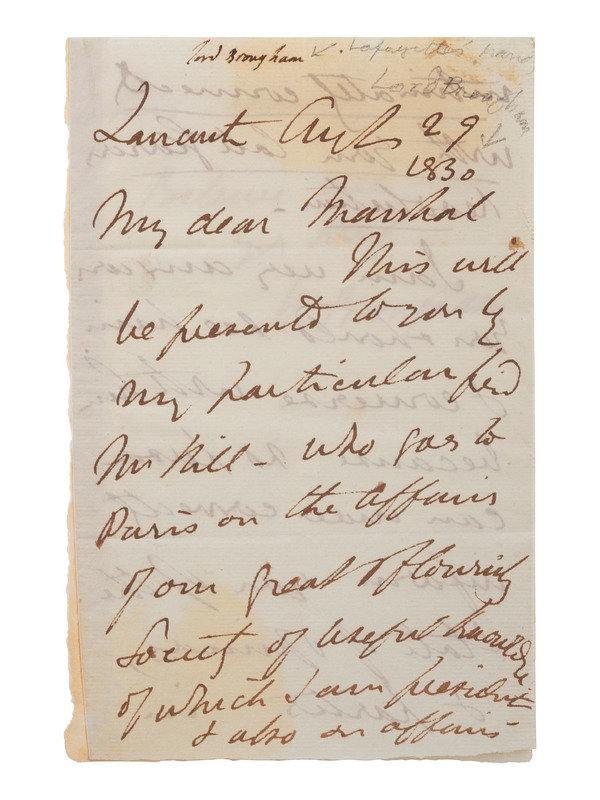 Lord Brougham
Lafayette's hand
Lord Brougham
Lancaster Augt 29
1830
My dear Marshal
This will
be presented to you by
my particular frd
Mr Hill - who goes to
Paris on the affairs
of our great & flourishg
Society of useful knowledge
of which I am president
& also on affairs